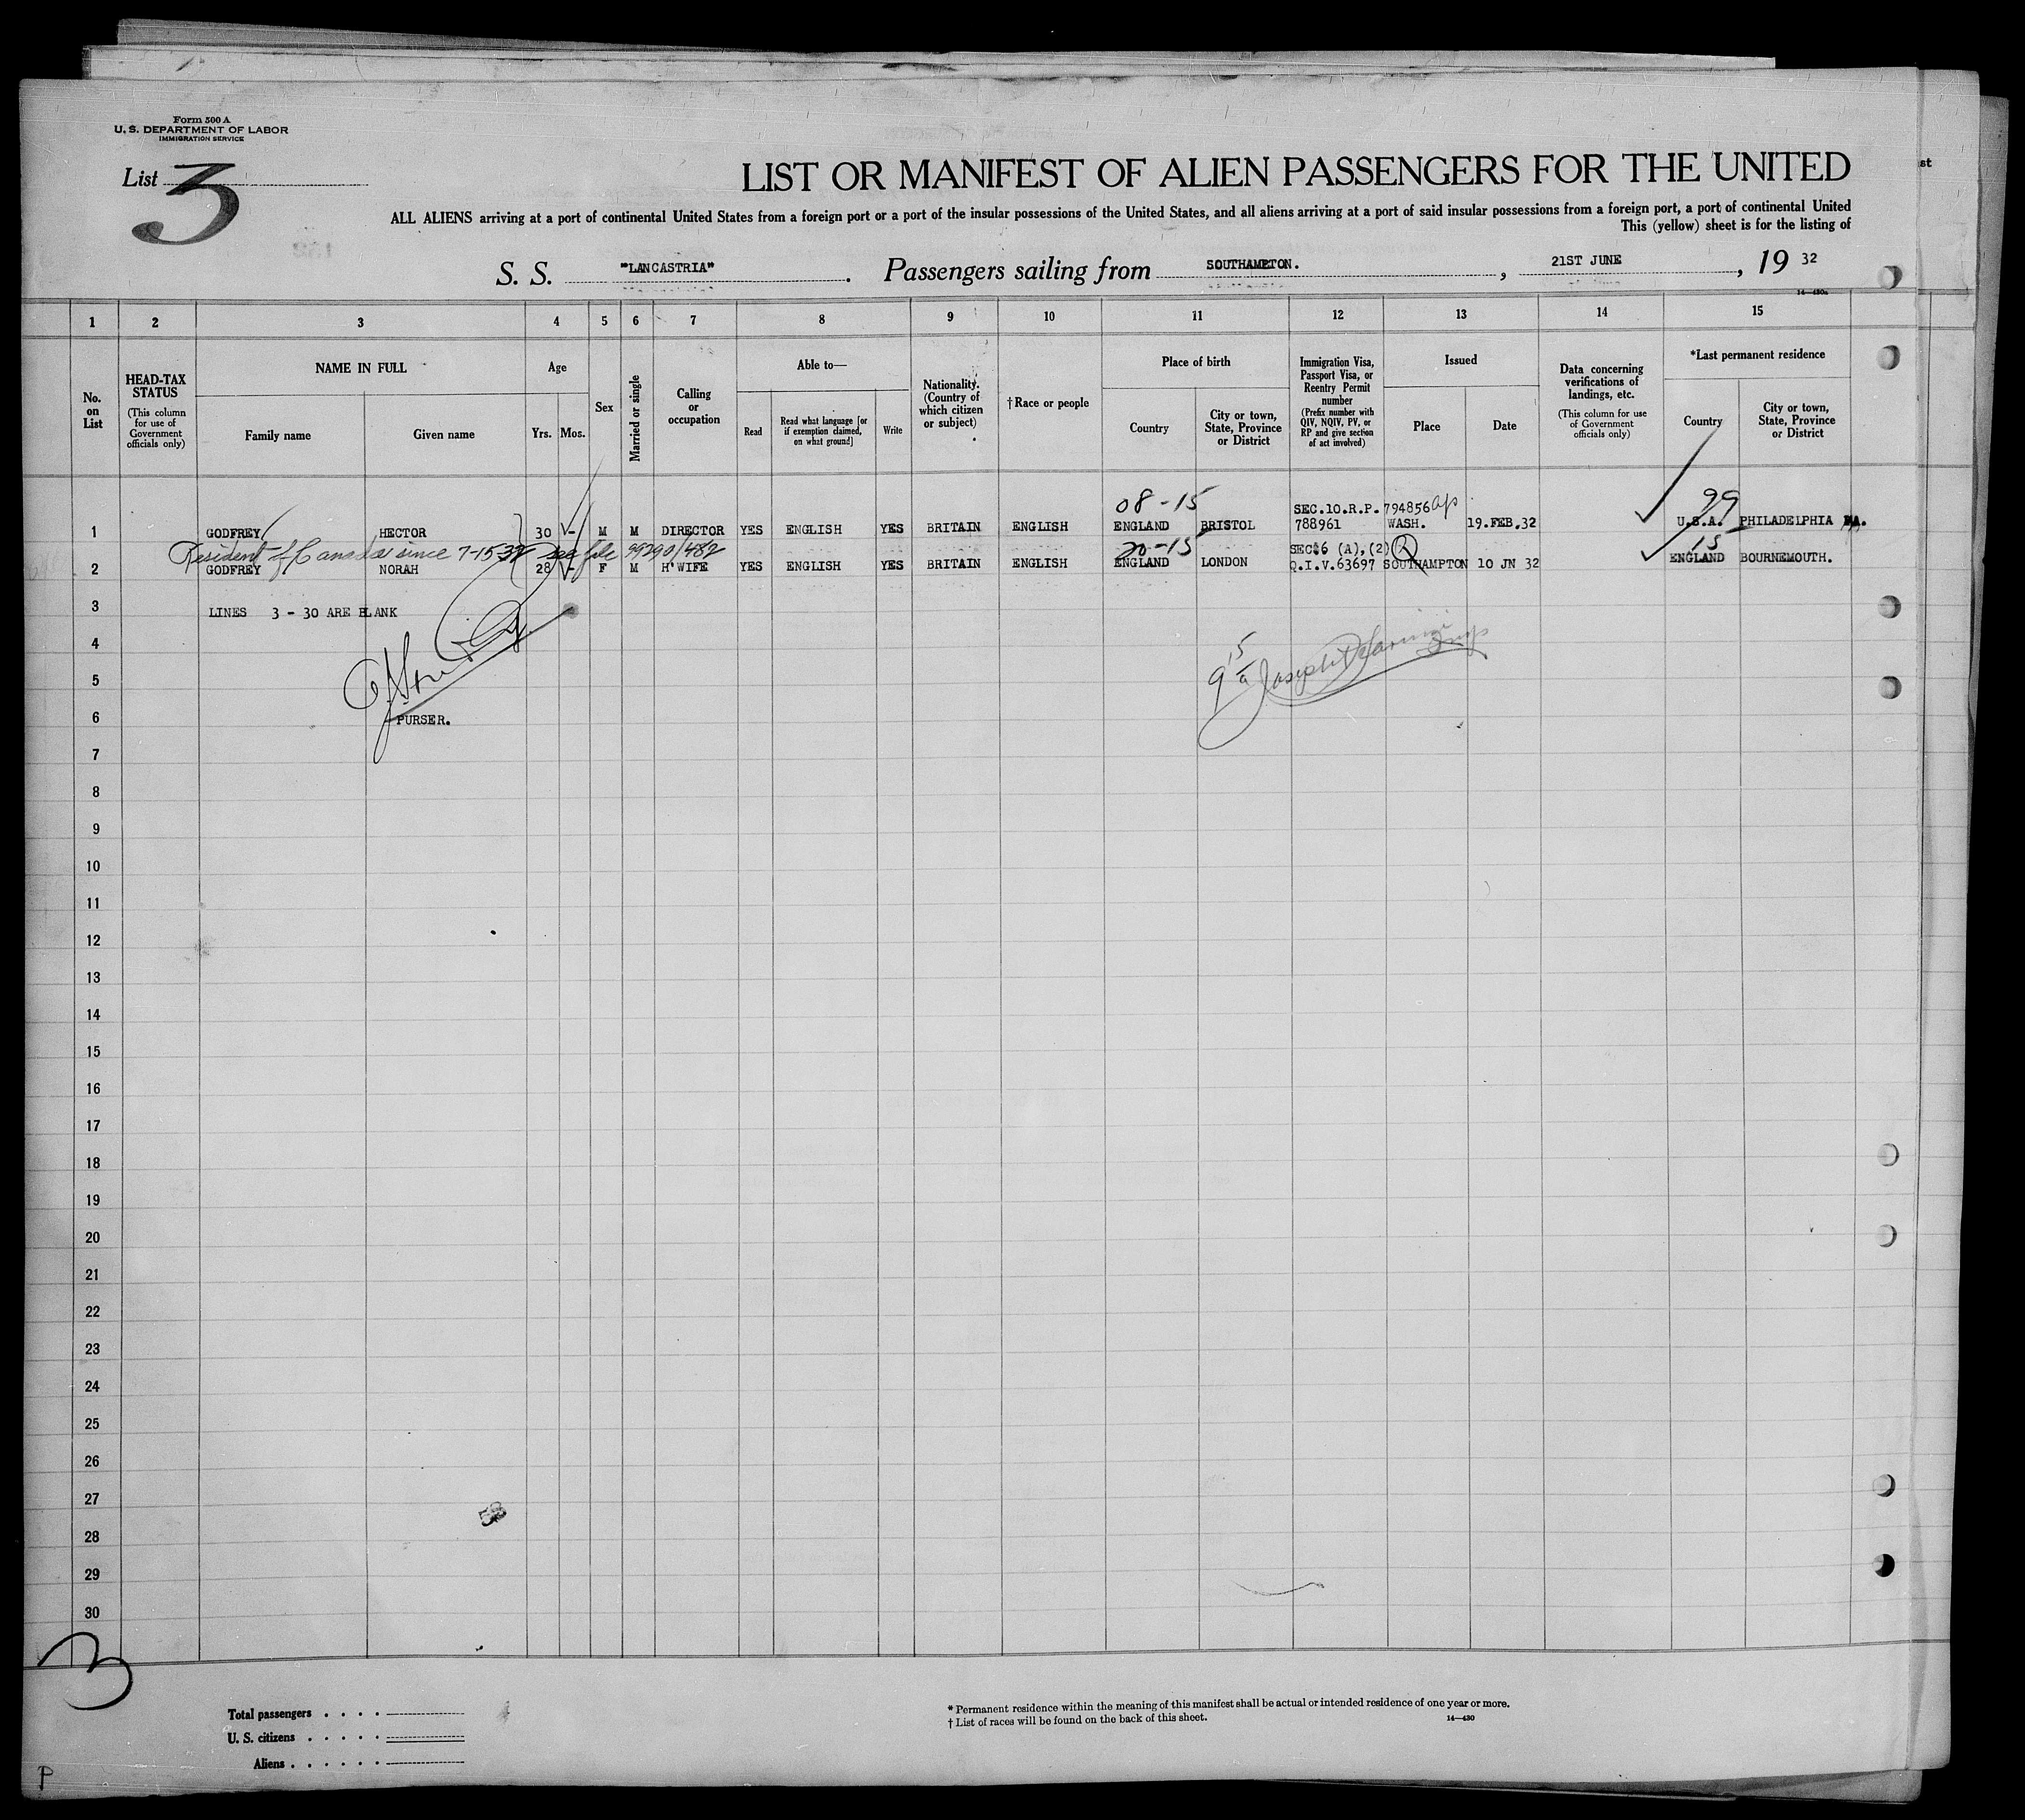 Form 500 A
U. S. DEPARTMENT OF LABOR
IMMIGRATION SERVICE
List 3
LIST OR MANIFEST OF ALIEN PASSENGERS FOR THE UNITED
st
ALL ALIENS arriving at a port of continental United States from a foreign port or a port of the insular possessions of the United States, and all aliens arriving at a port of said insular possessions from a foreign port, a port of continental United
This (yellow) sheet is for the listing of
S. S. "LANCASTRIA". Passengers sailing from SOUTHAMPTON., 21ST JUNE, 19 32
14—430a
1 2 3 4 5 6 7 8 9 10 11 12 13 14 15
No. on List
HEAD-TAX STATUS (This column for use of Government officials only)
NAME IN FULL
Family name Given name
Age
Yrs. Mos.
Sex
Married or single
Calling or occupation
Able to—
Read Read what language [or if exemption claimed, on what ground] Write
Nationality. (Country of which citizen or subject)
†Race or people
Place of birth
Country City or town, State, Province or District
Immigration Visa, Passport Visa, or Reentry Permit number (Prefix number with QIV, NQIV, PV, or RP and give section of act involved)
Issued
Place Date
Data concerning verifications of landings, etc. (This column for use of Government officials only)
*Last permanent residence
Country City or town, State, Province or District
08-15 SEC.10.R.P. 794856 99
1 GODFREY HECTOR 30 - M M DIRECTOR YES ENGLISH YES BRITAIN ENGLISH ENGLAND BRISTOL 788961 WASH. 19.FEB.32 U.S.A. PHILADELPHIA PA.
Resident of Canada since 7-15-32 see file 99290/482 20-15 SEC:6 (A),(2) 15
2 GODFREY NORAH 28 - F M H'WIFE YES ENGLISH YES BRITAIN ENGLISH ENGLAND LONDON Q.I.V.63697 SOUTHAMPTON 10 JN 32 ENGLAND BOURNEMOUTH.
3 LINES 3 - 30 ARE BLANK
4
5 9 15 a Joseph
6 PURSER.
7
8
9
10
11
12
13
14
15
16
17
18
19
20
21
22
23
24
25
26
27
28
29
30
3
Total passengers . . . .
U. S. citizens . . . . .
Aliens . . . . . .
* Permanent residence within the meaning of this manifest shall be actual or intended residence of one year or more.
† List of races will be found on the back of this sheet.
14—430
P